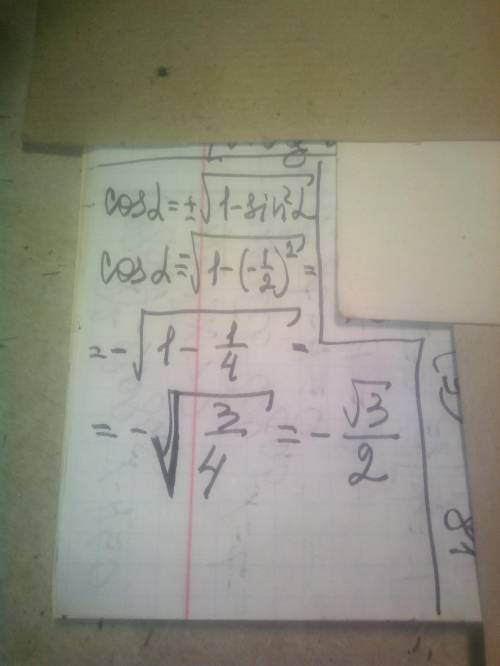 cosα=±√(1-sin²α)
cosα=-√(1-(-1/2)²)=
=-√(1-1/4)=
=-√(3/4)=-√3/2